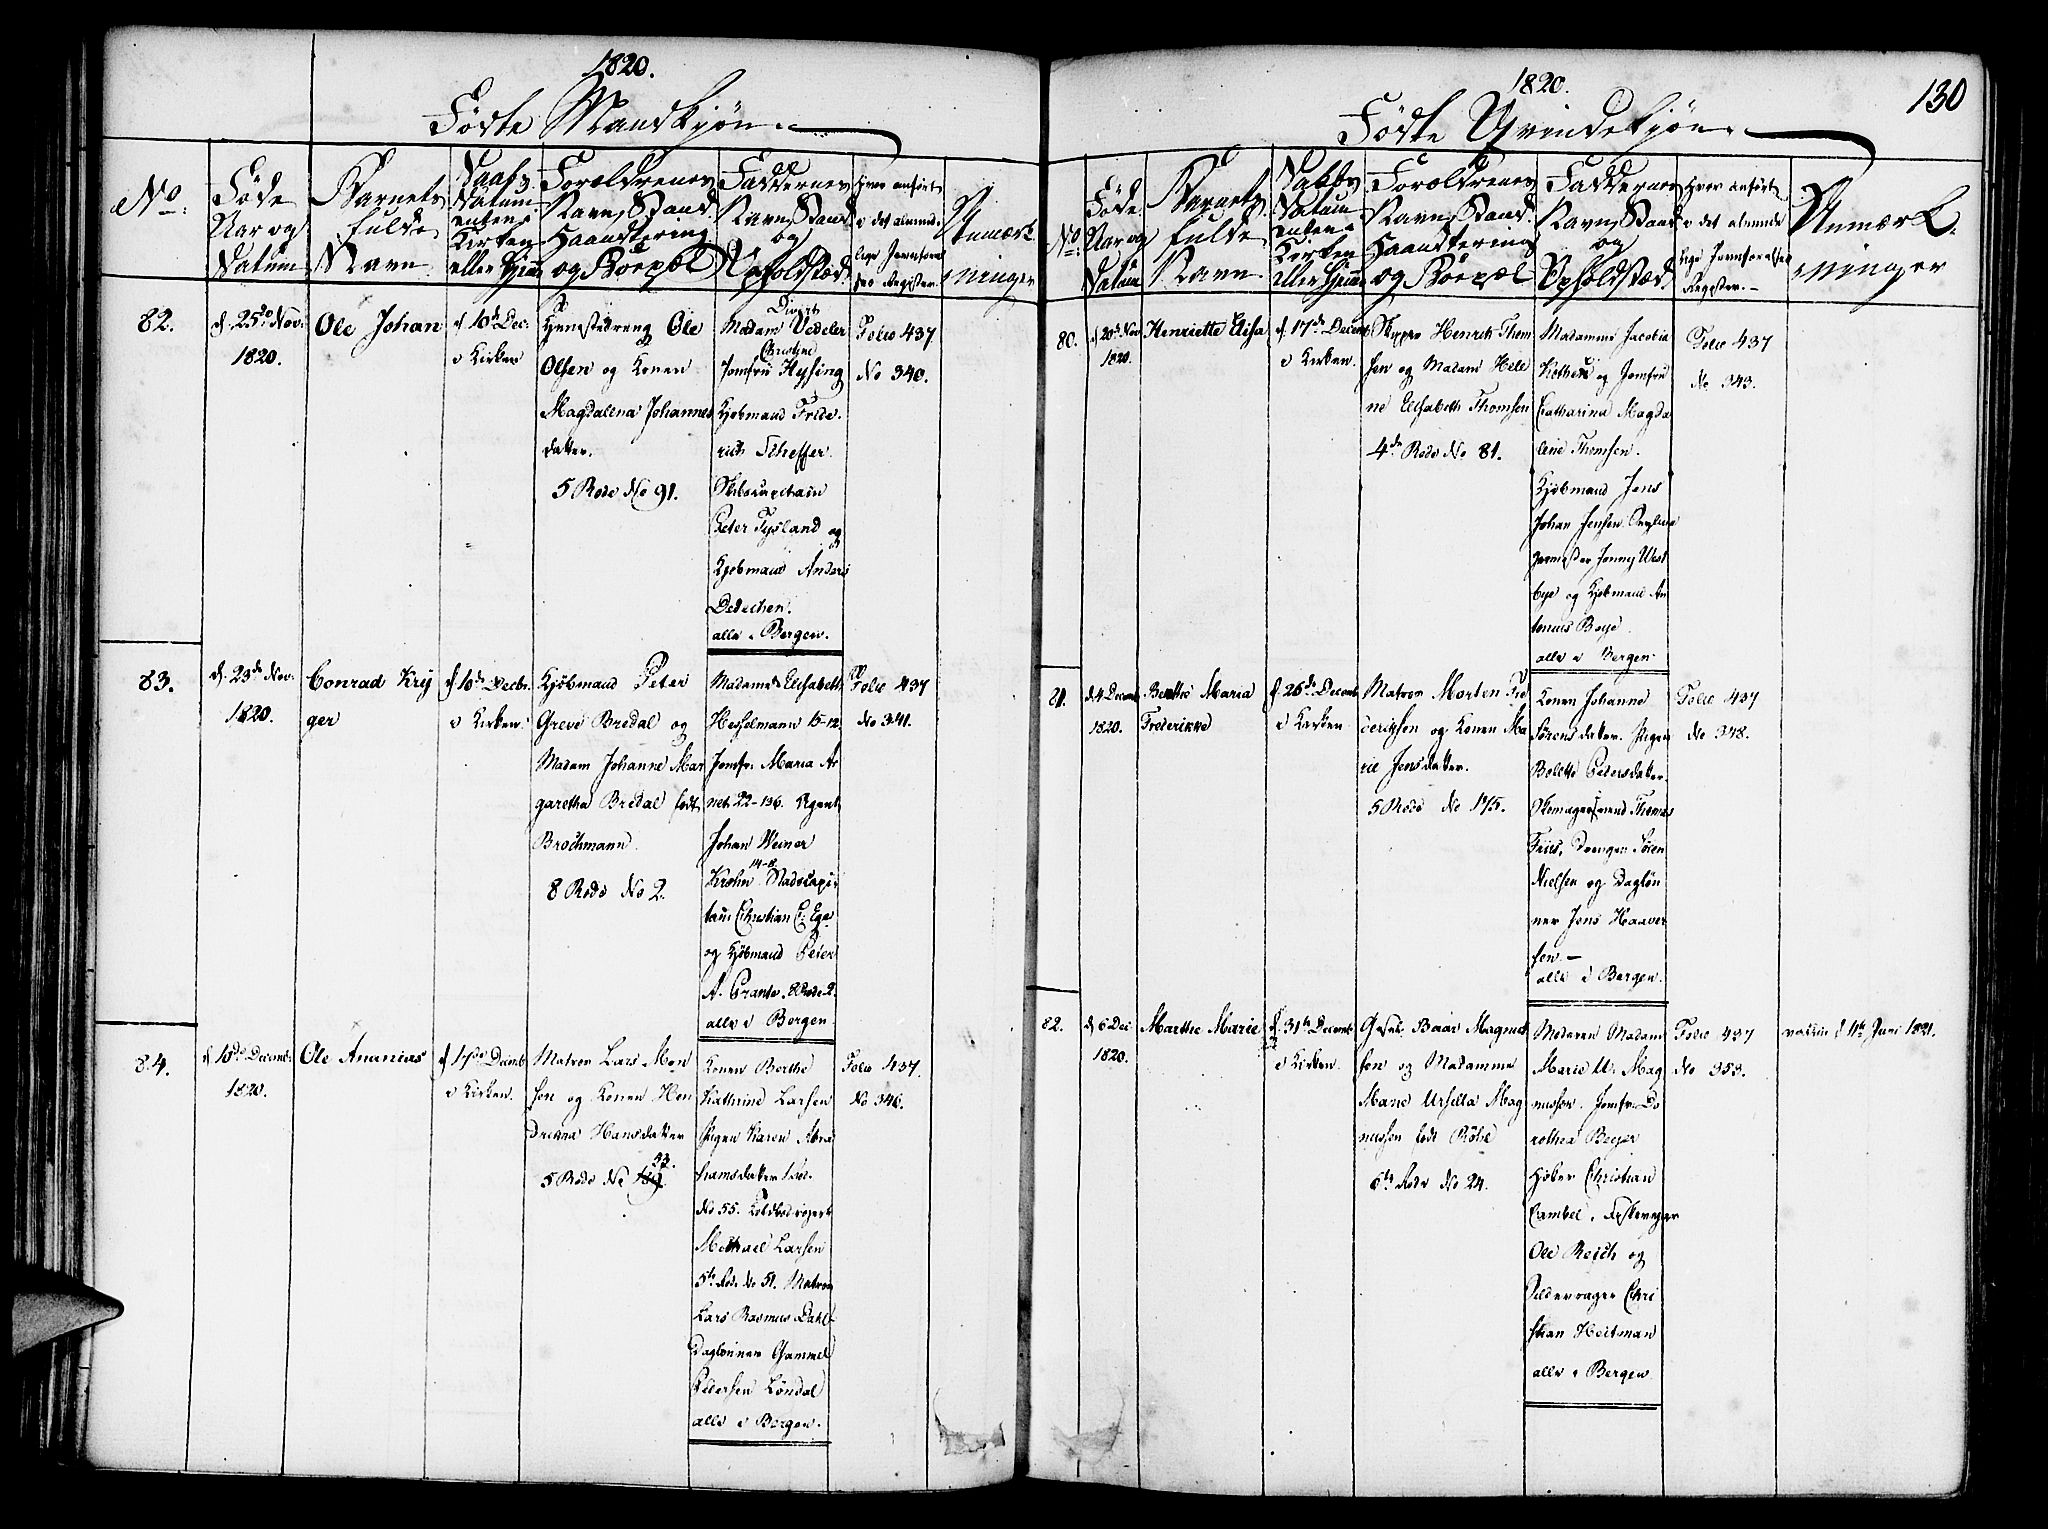 1820.
Fødte Mandkjøn.
No.
Føde
Aar og
Datum
Barnets
fulde
Navn
Daabs
Datum
enten i
Kirken
eller Hjem
Forældrenes
Navn, Stand
Haandtering
og Boepæl
Faddernes
Navn, Stand
og
Opholdsted
Hvor anført
i det almind
lige Jevnføres
ses Register.
Anmærk
ninger
82.
d. 25de Nov.
1820.
Ole Johan
d. 10de Dec.
i Kirken
Ole
Olsen og Konen
Magdalena Johannes
datter.
5 Rode No 91.
Madam Vedeler
Christine
Jomfru Hysing
Kjøbmand Frede
rich Scheffer.
Skibscapitain
Peter Tysland og
Kjøbmand Anders
Dedechen.
alle i Bergen.
Folio 437
No 340.
83.
d. 23de Nov.
1820.
Conrad Kry
ger
d. 10de Decbr.
i Kirken.
Kjøbmand Peter
Greve Bredal og
Madam Johanne Mar
garetha Bredal født
Brochmann.
8 Rode No 2.
Madame Elisabeth
Hesselmann 15-12
Jomfr. Maria Ar
nets 22-136. Agent
Johan Weiner
14-8.
Krohn. Stadscapi
tain Christian C. Ege
og Kjøbmand Peter
A. Grante. 8 Rode 2.
alle i Bergen
Folio 437
No 341.
84.
d. 10de Decemb.
1820.
Ole Ananias
d. 17de Decemb
i Kirken.
Matros Lars Mon
sen og Konen Hen
drikka Hansdatter
53.
5 Rode No 189.
Konen Berthe
Kathrine Larsen
Pigen Karen Abra
hamsdatter
No 55.
Michael Larsen
5te Rode No 51. Matros
Lars Rasmus Dahl
Daglønner Gammel
Pedersen Løndal
alle i Bergen.
Folio 437.
No 346.
1820.
130
Fødte Qvindekjøn.
No.
Føde
Aar og
Datum
Barnets
fulde
Navn
Daabs
Datum
enten i
Kirken
eller Hjem
Forældrenes
Navn, Stand
Haandtering
og Boepæl
Faddernes
Navn, Stand
og
Opholdsted
Hvor anført
i det alminde
lige Jevnførelses
Register.
Anmærk
ninger
80.
d. 20de Nov
1820.
Henriette Elisa
d. 17de Decemb
i Kirken.
Skipper Henrich Thom
sen og Madam Hele
ne Elisabeth Thomsen
4de Rode No 81.
Madamme Jacobia
og Jomfru
Catharina Magda
lene Thomsen.
Kjøbmand Jens
Johan Jensen
Jonny West
bye og Kjøbmand An
tonius Beyer.
alle i Bergen.
Folio 437
No 343.
81.
d. 4 Decemb
1820.
Berthe Maria
Frederikke
d. 26de Decemb
i Kirken
Matros Morten Fre
deriksen og Konen Ma
rie Jensdatter.
5 Rode No 175.
Konen Johanne
Sørensdatter. Pigen
Bolette Pedersdatter.
Skomagersvend Thomas
Friis, Drengen Søren
Nielsen og Dagløn
ner Jens Haaver
sen.
alle i Bergen.
Folio 437
No 348.
82.
d. 6 Dec
1820.
Marthe Marie
d. 31te Decemb
i Kirken.
Baar Magnus
sen og Madamme
Marie Ursella Mag
nussen født Röhe
6te Rode No 24.
Moderen Madam
Marie U. Mag
nussen. Jomfr. Do
rothea Beyer
Høker Christian
Cambel. Fiskevrager
Ole Reich og
Sildevrager Chri
stian Heitman
alle i Bergen.
Folio 437
No 353.
vaccin d. 4de Juni 1821.